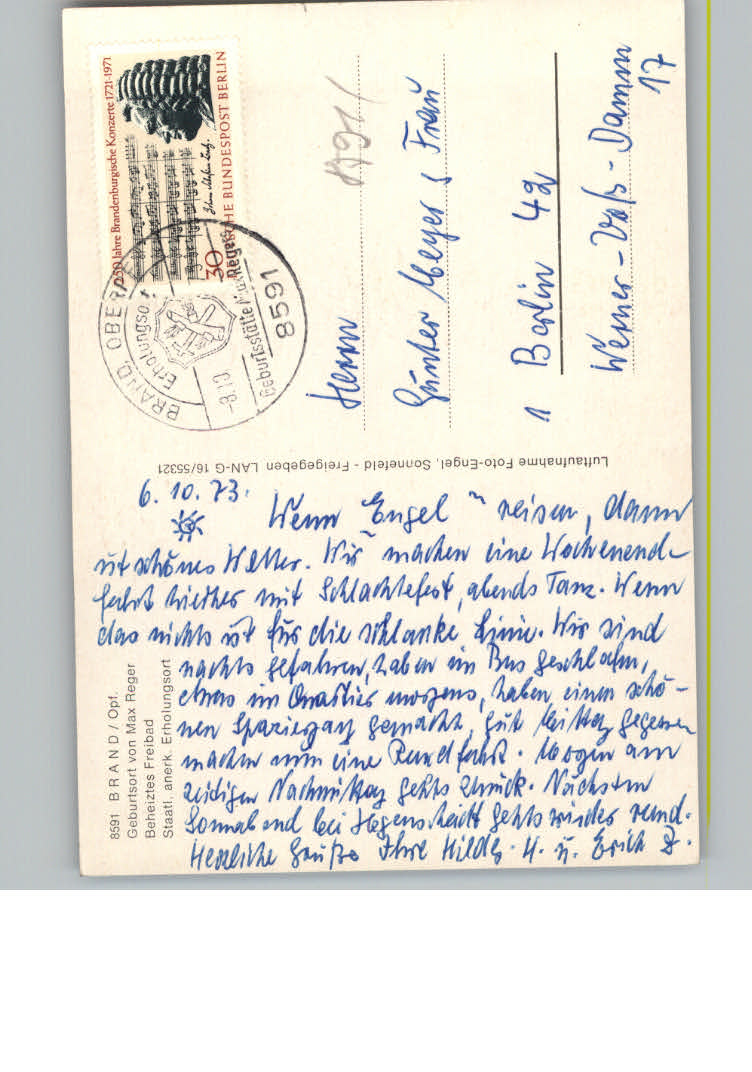 250 Jahre Brandenburgische Konzerte 1721-1971
30
DEUTSCHE BUNDESPOST BERLIN
BRAND, OBERPF
Erholungsort
-8.10
Geburtsstätte Max Regers
8591
8591
Herrn
Günter Meyer & Frau
1 Berlin 42
Werner-Voß-Damm
17
Luftaufnahme Foto-Engel, Sonnefeld - Freigegeben LAN-G 16/55321
8591 BRAND / Opf.
Geburtsort von Max Reger
Beheiztes Freibad
Staatl. anerk. Erholungsort
6.10.73.
Wenn "Engel" reisen, dann
ist schönes Wetter. Wir machen eine Wochenend-
fahrt hierher mit Schlachtefest, abends Tanz. Wenn
das nichts ist für die schlanke Linie. Wir sind
nachts gefahren, haben im Bus geschlafen,
etwas im Quartier morgens, haben einen schö-
nen Spaziergang gemacht, gut Mittag gegessen
machen nun eine Rundfahrt. Morgen am
zeitigen Nachmittag gehts zurück. Nächsten
Sonnabend bei Hegenscheidt gehts wieder rund.
Herzliche Grüße Ihre Hildeg. H. u. Erich